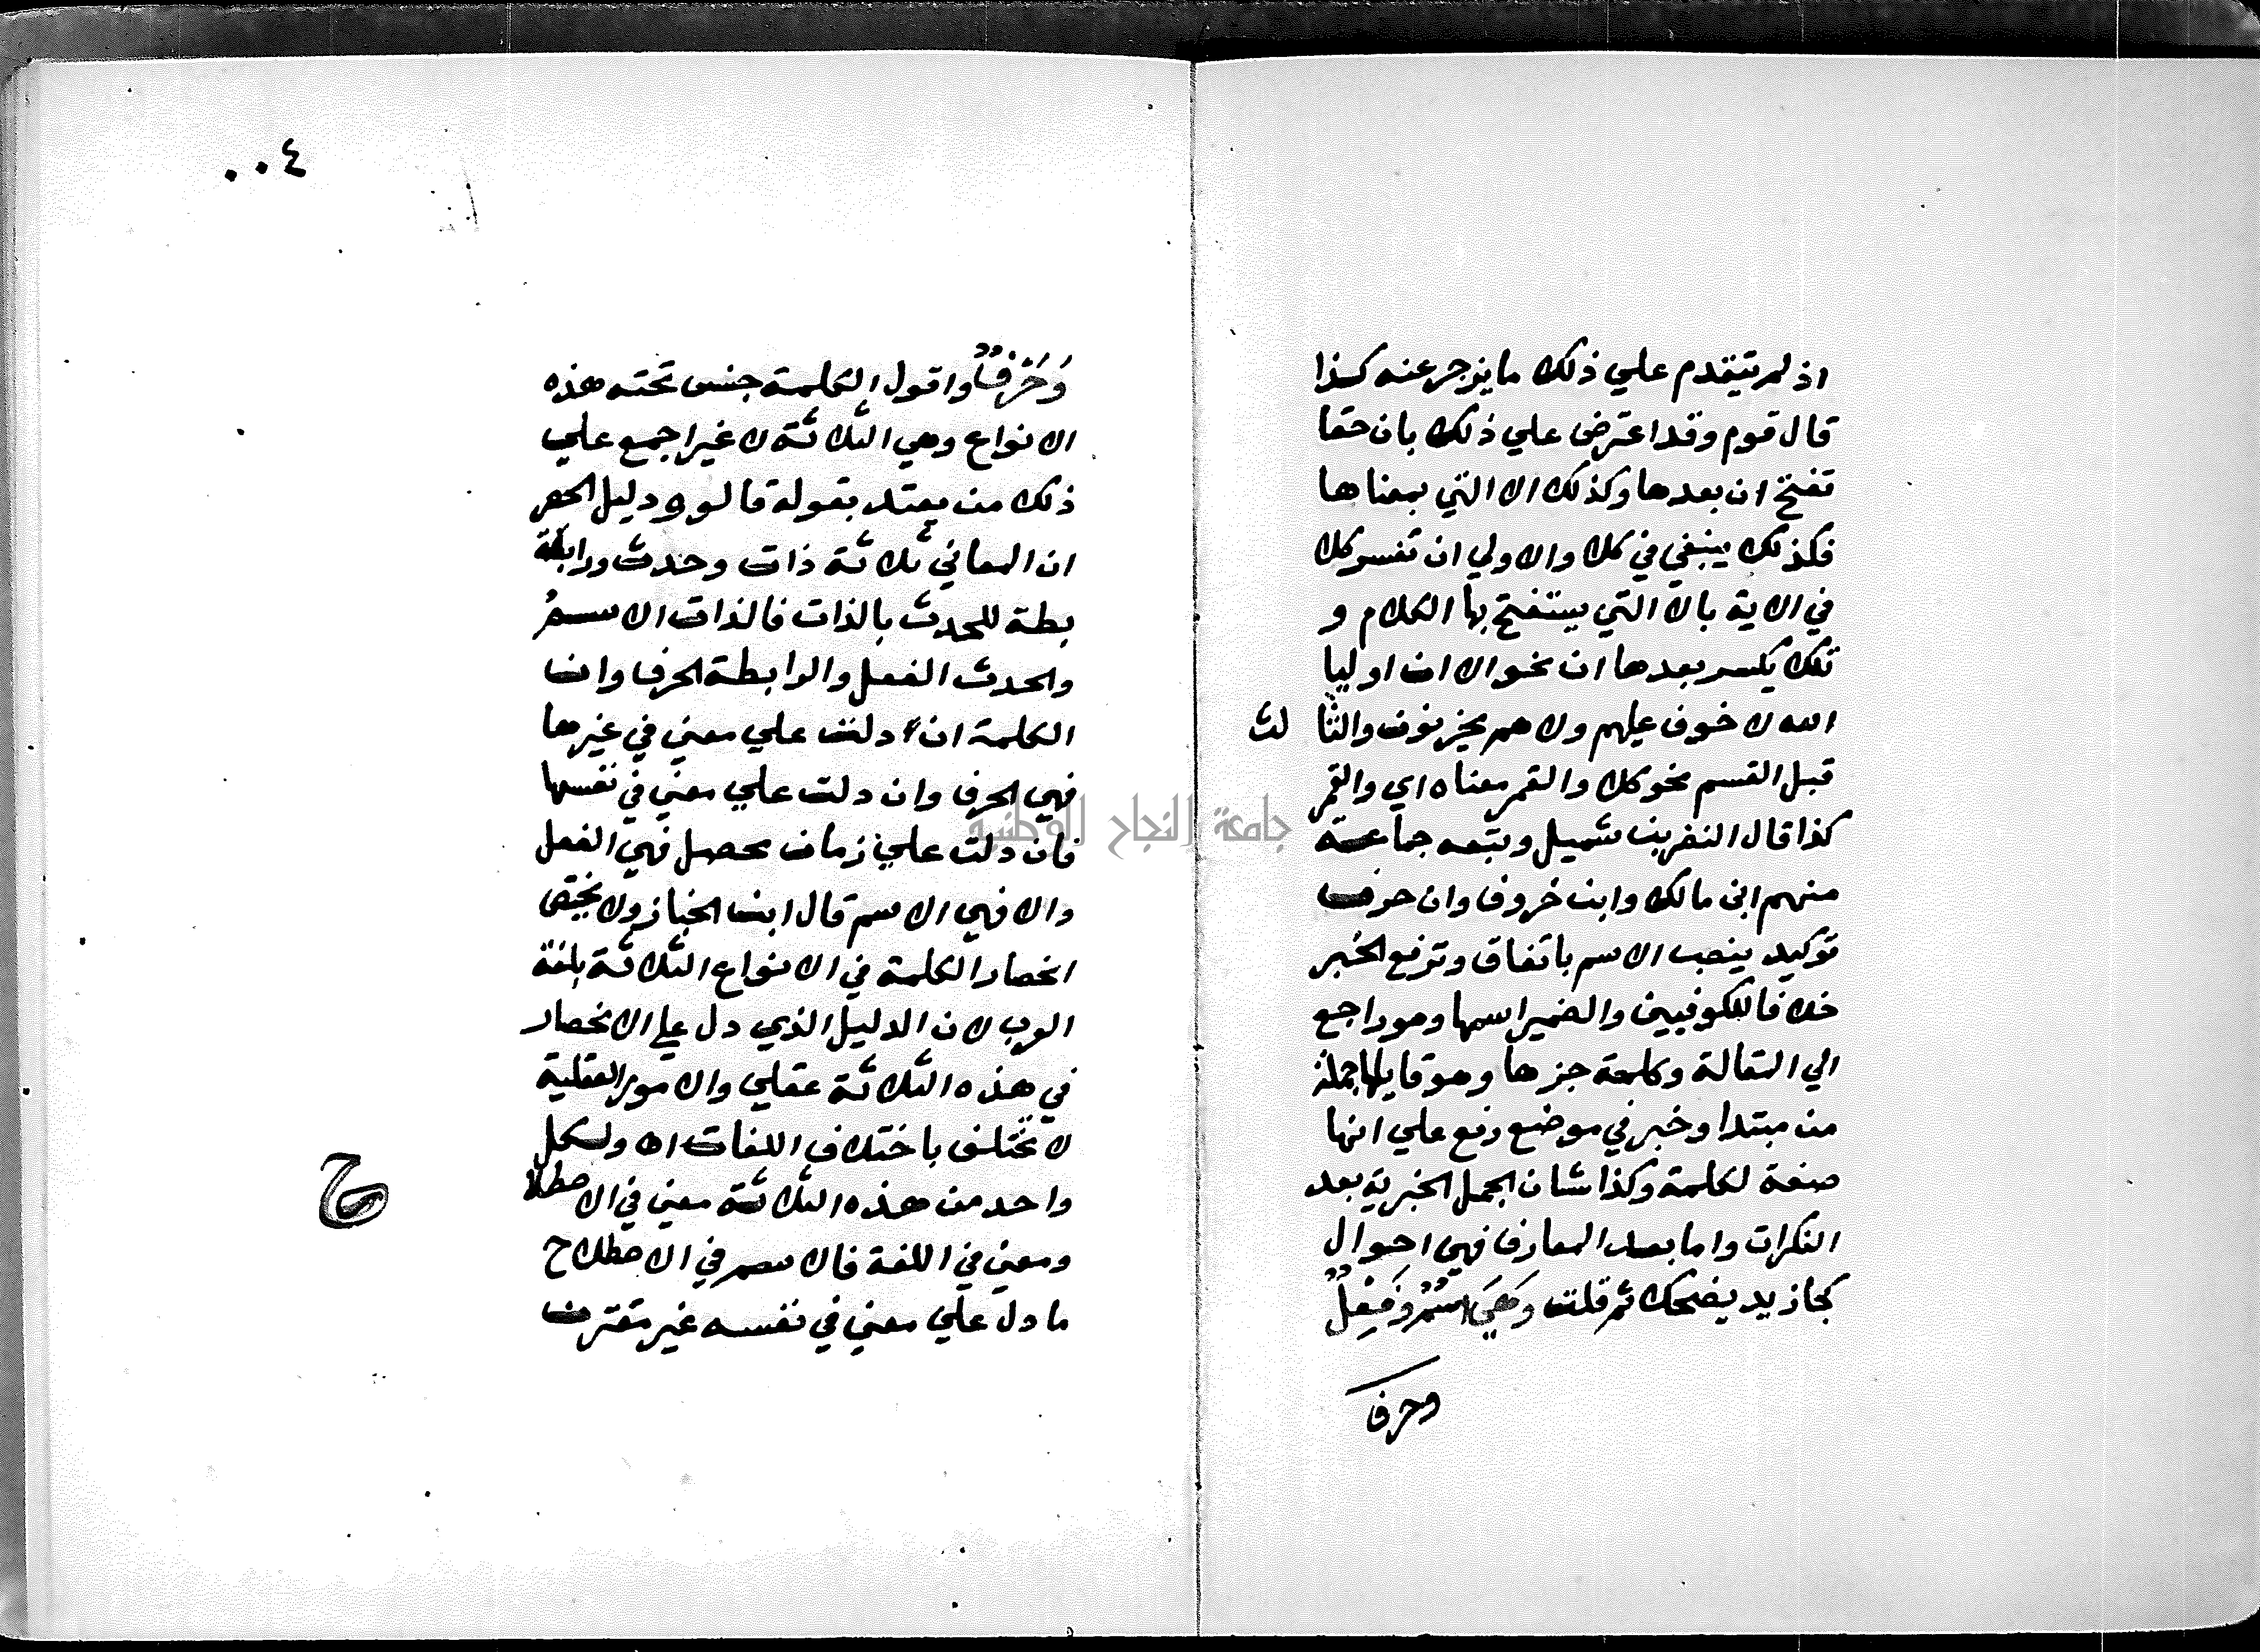 اذ لم يتقدم علي ذلك ما يزجر عنه كذا
قال قوم وقد اعترض علي ذلك بان حقا
تفتح ان بعدها وكذلك الا التي بمعناها
فكذلك ينبغي في كلا والاولي ان تفسر كلا
في الاية بالا التي يستفتح بها الكلام و
تلك يكسر بعدها ان نحو الا ان اوليا
الله لا خوف عليهم ولا هم يحزنون والثا لث
قبل القسم نحو كلا والقمر معناه اي والقمر
كذا قال النضر بن شميل وتبعه جماعة
منهم ابن مالك وابن خروف وان حرف
توكيد ينصب الاسم باتفاق وترفع الخبر
خلافا للكوفيين والضمير اسمها وهو راجع
الي المقالة وكلمة خبرها وهو قايلها جملة
من مبتدا وخبر في موضع رفع علي انها
صفة لكلمة وكذا شان الجمل الخبرية بعد
النكرات واما بعد المعارف فهي احوال
كجا زيد يضحك ثم قلت وَهِيَ اسْمٌ وَفِعْلٌ
وحرف
٠٠٤
وَحَرْفٌ واقول الكلمة جنس تحته هذه
الانواع وهي الثلاثة لا غير اجمع علي
ذلك من يعتد بقوله قالوا ودليل الحصر
ان المعاني ثلاثة ذات وحدث ورابطة
بطة للحدث بالذات فالذات الاسم
والحدث الفعل والرابطة الحرف وان
الكلمة ان دلت علي معني في غيرها
فهي الحرف وان دلت علي معني في نفسها
فان دلت علي زمان محصل فهي الفعل
والا فهي الاسم قال ابن الخباز ولا يختص
انحصار الكلمة في الانواع الثلاثة بلغة
العرب لان الدليل الذي دل علي الانحصار
في هذه الثلاثة عقلي والامور العقلية
لا تختلف باختلاف اللغات اه ولكل
واحد من هذه الثلاثة معني في الاصطلا
ح
ومعني في اللغة فالاسم في الاصطلاح
ما دل علي معني في نفسه غير مقترن
جامعة النجاح الوطنية